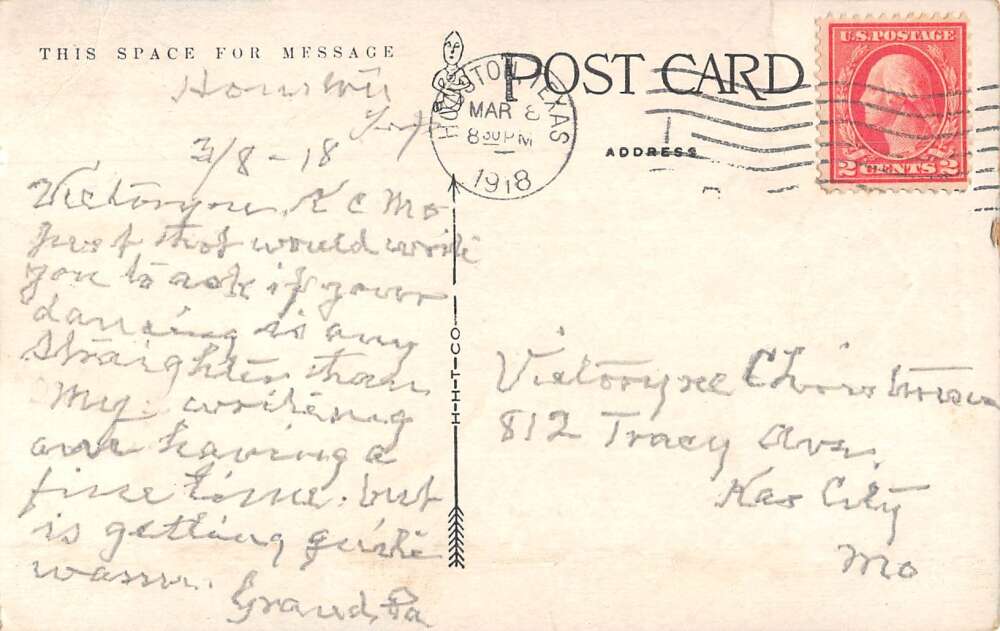 THIS SPACE FOR MESSAGE
Houston
Tex
3/8-18
Victoryne K C Mo
Just that would write
you to ask if your
dancing is any
straighter than
my writing
am having a
fine time. but
is getting quite
warm.
Grand Pa
H-H-T-CO
POST CARD
ADDRESS
HOUSTON, TEXAS
MAR 8
8 30 PM
1918
U.S. POSTAGE
2 CENTS 2
Victoryne
812 Tracy Ave.
Kas City
Mo